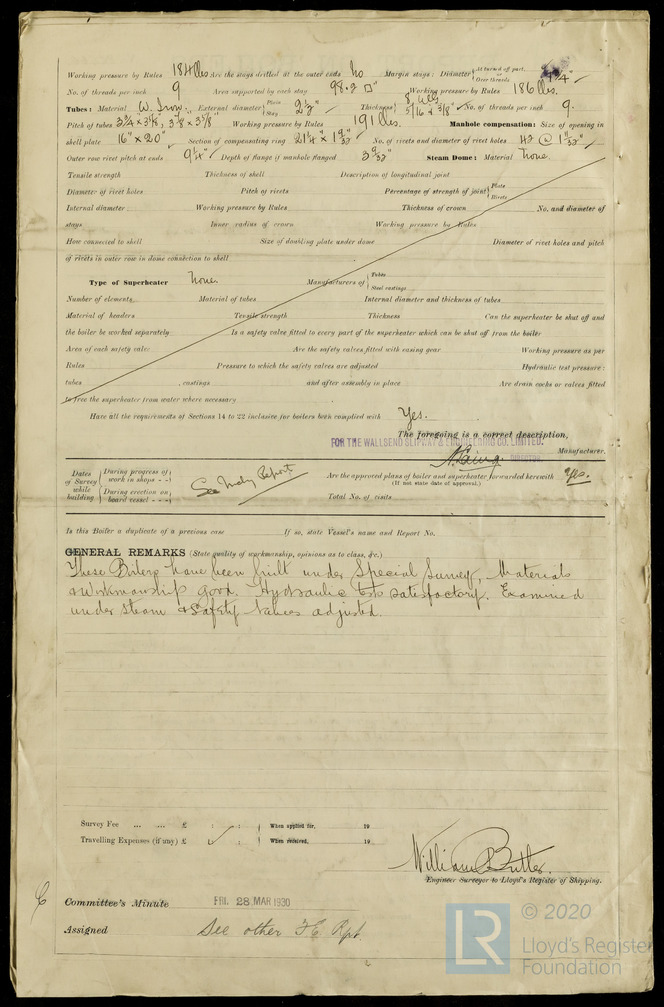 Working pressure by Rules 184 lbs Are the stays drilled at the outer ends No Margin stays: Diameter { At turned off part, or Over threads 1¾"
No. of threads per inch 9 Area supported by each stay 98.2 □" Working pressure by Rules 186 lbs.
Tubes: Material W. Iron. External diameter { Plain Stay 2½" Thickness { 8 WG 5/16 & 3/8" No. of threads per inch 9.
Pitch of tubes 3¾ x 3⅝, 3⅞ x 3⅝" Working pressure by Rules 191 lbs. Manhole compensation: Size of opening in
shell plate 16" x 20" Section of compensating ring No. of rivets and diameter of rivet holes 42 @
Outer row rivet pitch at ends 9¼" Depth of flange if manhole flanged Steam Dome: Material None.
Tensile strength Thickness of shell Description of longitudinal joint
Diameter of rivet holes Pitch of rivets Percentage of strength of joint { Plate Rivets
Internal diameter Working pressure by Rules Thickness of crown No. and diameter of
stays Inner radius of crown Working pressure by Rules
How connected to shell Size of doubling plate under dome Diameter of rivet holes and pitch
of rivets in outer row in dome connection to shell
Type of Superheater None Manufacturers of { Tubes Steel castings
Number of elements Material of tubes Internal diameter and thickness of tubes
Material of headers Tensile strength Thickness Can the superheater be shut off and
the boiler be worked separately Is a safety valve fitted to every part of the superheater which can be shut off from the boiler
Area of each safety valve Are the safety valves fitted with easing gear Working pressure as per
Rules Pressure to which the safety valves are adjusted Hydraulic test pressure:
tubes , castings and after assembly in place Are drain cocks or valves fitted
to free the superheater from water where necessary
Have all the requirements of Sections 14 to 22 inclusive for boilers been complied with Yes.
The foregoing is a correct description,
FOR THE WALLSEND SLIPWAY & ENGINEERING CO. LIMITED.
Manufacturer.
DIRECTOR.
Dates of Survey while building { During progress of work in shops - - } { During erection on board vessel - - - } See Mchy Reports
Are the approved plans of boiler and superheater forwarded herewith Yes.
(If not state date of approval.)
Total No. of visits
Is this Boiler a duplicate of a previous case If so, state Vessel's name and Report No.
GENERAL REMARKS (State quality of workmanship, opinions as to class, &c.)
These Boilers have been built under Special Survey, Materials
& Workmanship good. Hydraulic tests satisfactory. Examined
under steam & safety valves adjusted.
Survey Fee ... ... £ : : When applied for, 19
Travelling Expenses (if any) £ : : When received, 19
William Butler.
Engineer Surveyor to Lloyd's Register of Shipping.
Committee's Minute FRI. 28 MAR 1930
Assigned See other F.E. Rpt.
LR © 2020
Lloyd's Register
Foundation